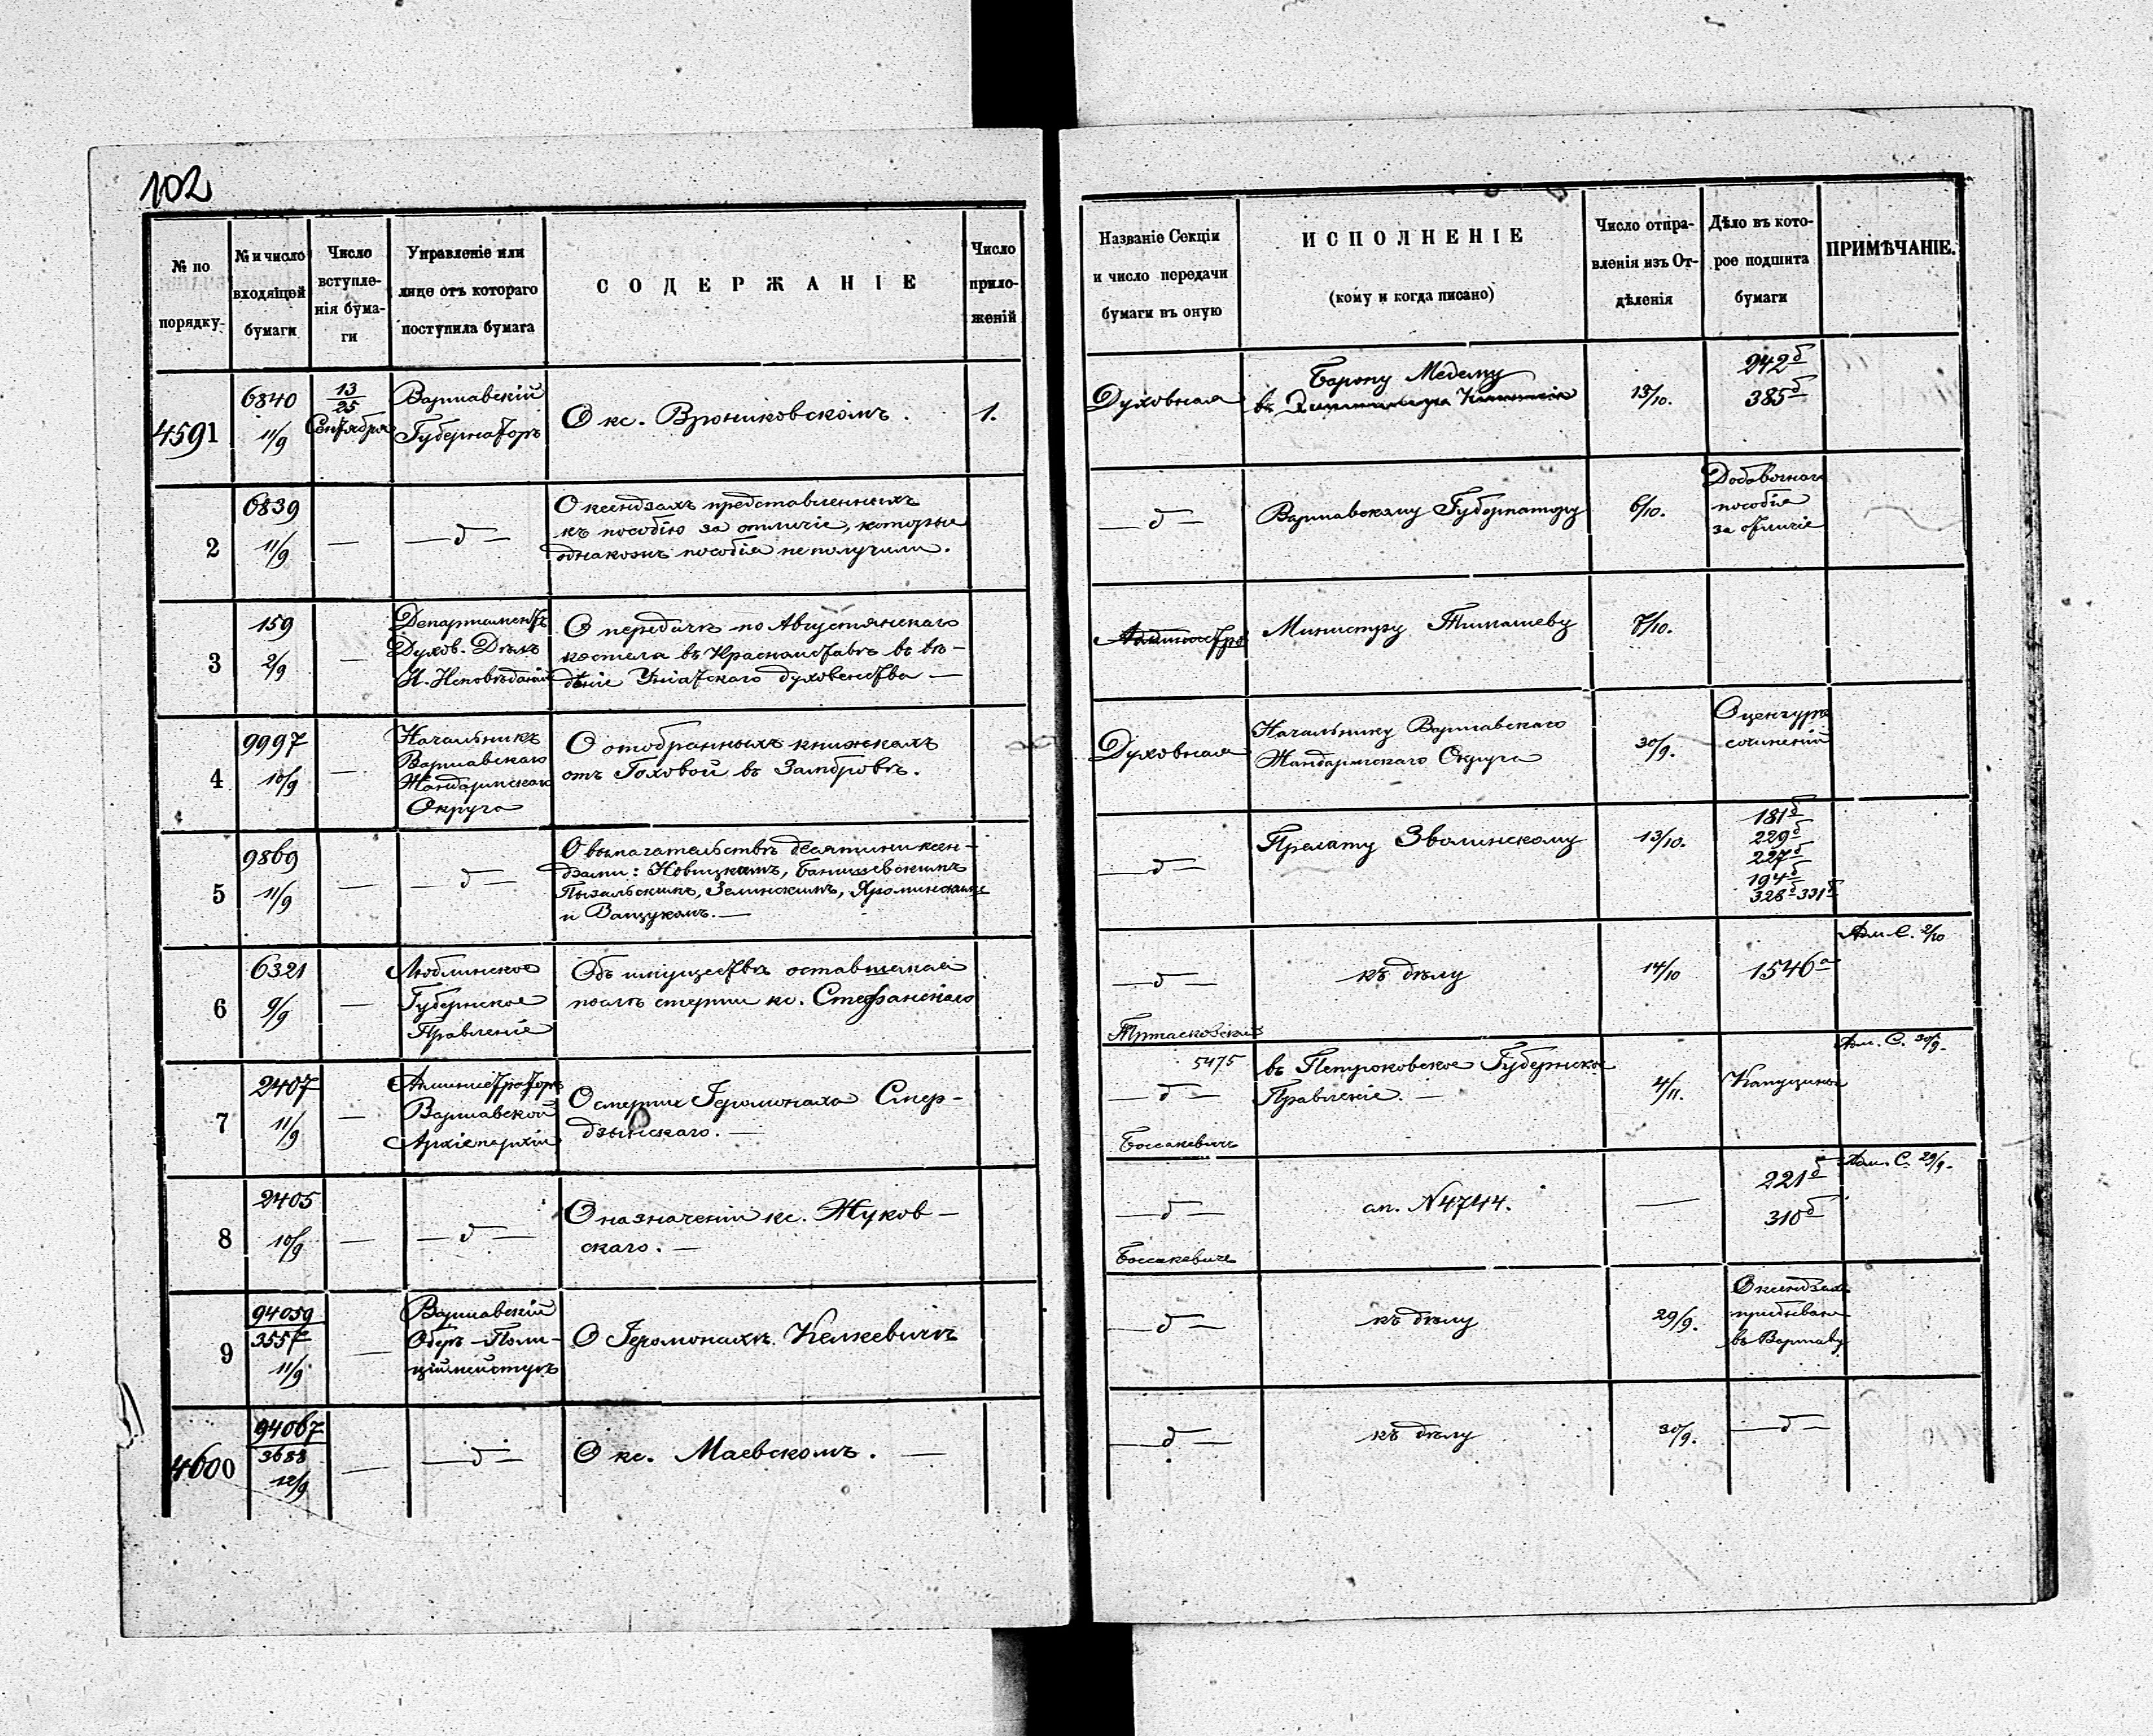 102
№ по порядку.
№ и число входящей бумаги
Число вступленія бумаги
Управленіе или лице отъ котораго поступила бумага
СОДЕРЖАНІЕ
Число приложеній
Названіе Секціи и число передачи бумаги въ оную
ИСПОЛНЕНІЕ
(кому и когда писано)
Число отправленія изъ Отдѣленія
Дѣло въ которое подшита бумаги
ПРИМѢЧАНІЕ.
4591
6840
11/9
13/25
Сентября
Варшавскій
Губернаторъ
О кс. Врониковскомъ.
1.
Духовная
Барону Медему
въ
13/10.
242 б
385 б
2
6839
11/9
—
— д —
О ксендзахъ представленныхъ
къ пособію за отличіе, которые
однакожъ пособія не получили.
— д —
Варшавскому Губернатору
6/10.
Добавочнаго
пособія
за отличіе
3
159
2/9
—
Департаментъ
Духов. Дѣлъ
И. Исповѣданій
О передачѣ по Августянскаго
костела въ Красноставѣ въ вѣ-
дѣніе Уніатскаго духовенства —
Министру Тимашеву
7/10.
4
9997
10/9
—
Начальникъ
Варшавскаго
Жандармскаго
Округа
О отобранныхъ книжкахъ
отъ Гоховой въ Замбровѣ.
Духовная
Начальнику Варшавскаго
Жандармскаго Округа
30/9.
О цензурѣ
сочиненій
5
9869
11/9
—
— д —
О вымагательствѣ десятины ксен-
дзами: Новицкимъ, Банишевскимъ
Пызальскимъ, Зелинскимъ, Яроминскимъ
и Ващукомъ. —
— д —
Прелату Зволинскому
13/10.
181 б
229 б
227 б
194 б
328 б 331 б
6
6321
9/9
—
Люблинское
Губернское
Правленіе
Объ имуществѣ оставшемся
послѣ смерти кс. Стефанскаго
— д —
къ дѣлу
14/10
1546 а
Адм. С. 2/10
7
2407
11/9
—
Администраторъ
Варшавской
Архіепархіи
О смерти Іеромонаха Смер-
дзынскаго. —
5475
— д —
въ Петроковское Губернское
Правленіе. —
4/11.
Капуцинов
Адм. С. 30/9.
8
2405
10/9
—
— д —
О назначеніи кс. Жуков-
скаго. —
Боссакевичъ
— д —
сп. N 4744.
—
221 б
310 б
Адм. С. 29/9.
9
94059
3557
11/9
—
Варшавскій
Оберъ-Поли-
ціймейстеръ
О Іеромонахѣ Келкевичѣ
Боссакевичъ
— д —
къ дѣлу
29/9.
О ксендзахъ
прибывш.
въ Варшаву
4600
94067
3688
12/9
—
— д —
О кс. Маевскомъ. —
— д —
къ дѣлу
30/9.
— д —